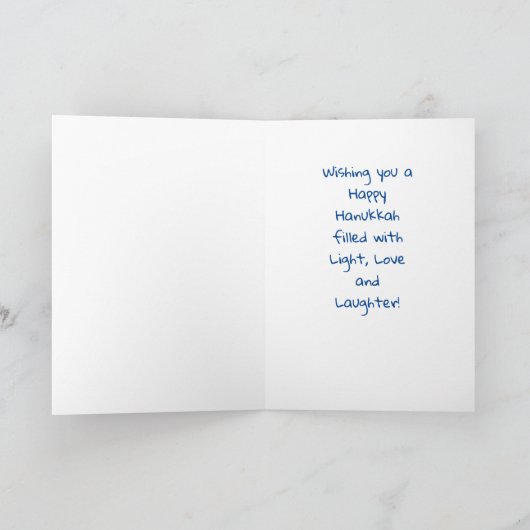 Wishing you a
Happy
Hanukkah
filled with
Light, Love
and
Laughter!